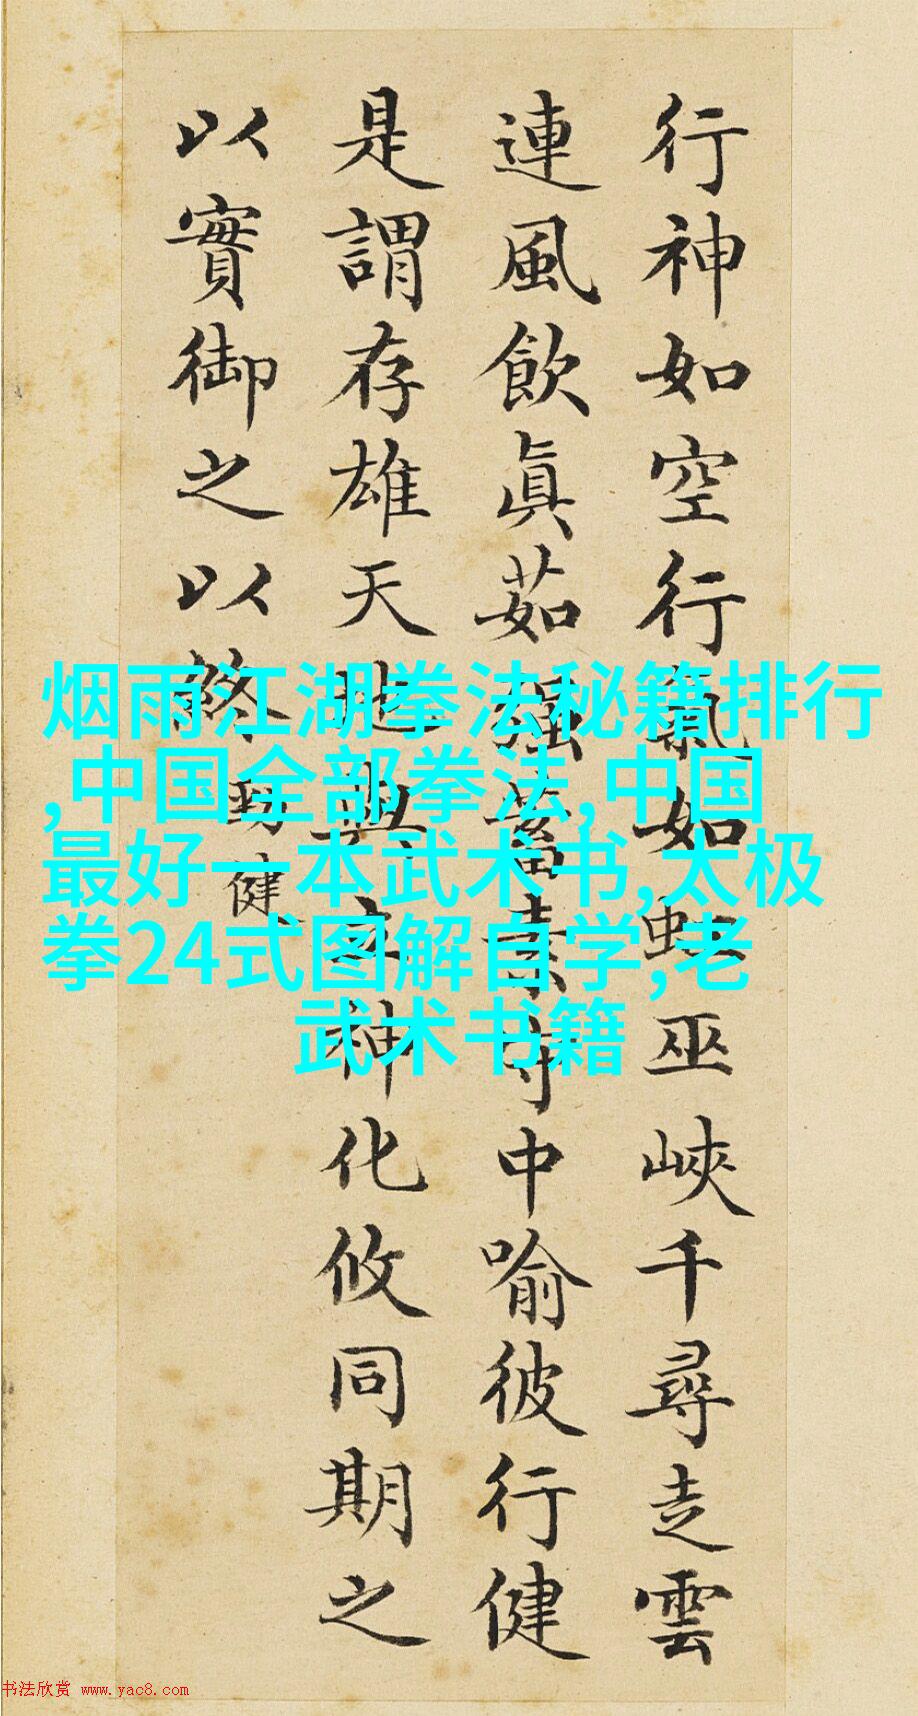 行神如空行氣如虹巫峽千尋走雲
連風飲眞茹强蓄素守中喻彼行健
是謂存雄天地與立神化攸同期之
以實御之以終
勁健
烟雨江湖拳法秘籍排行
,中国全部拳法,中国
最好一本武术书,太极
拳24式图解自学,老
武术书籍
书法欣赏 www.yac8.com